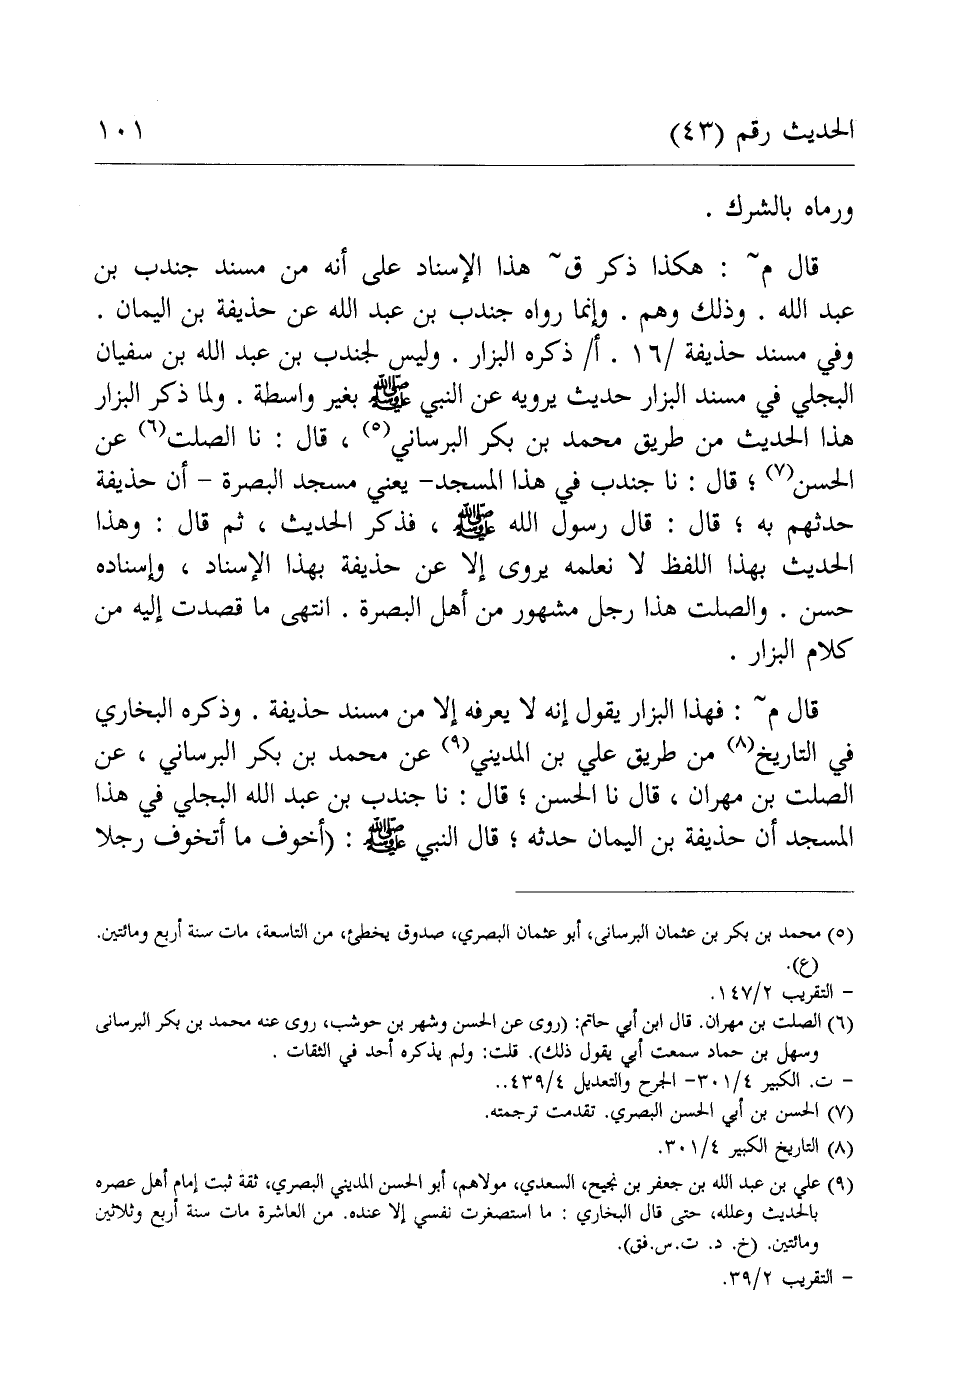 الحديث رقم (٤٣) ١٠١
ورماه بالشرك .
قال م~ : هكذا ذكر ق~ هذا الإسناد على أنه من مسند جندب بن
عبد الله . وذلك وهم . وإنما رواه جندب بن عبد الله عن حذيفة بن اليمان .
وفي مسند حذيفة /١٦ . أ/ ذكره البزار . وليس لجندب بن عبد الله بن سفيان
البجلي في مسند البزار حديث يرويه عن النبي ﷺ بغير واسطة . ولما ذكر البزار
هذا الحديث من طريق محمد بن بكر البرساني(٥) ، قال : نا الصلت(٦) عن
الحسن(٧) ؛ قال : نا جندب في هذا المسجد- يعني مسجد البصرة - أن حذيفة
حدثهم به ؛ قال : قال رسول الله ﷺ ، فذكر الحديث ، ثم قال : وهذا
الحديث بهذا اللفظ لا نعلمه يروى إلا عن حذيفة بهذا الإسناد ، وإسناده
حسن . والصلت هذا رجل مشهور من أهل البصرة . انتهى ما قصدت إليه من
كلام البزار .
قال م~ : فهذا البزار يقول إنه لا يعرفه إلا من مسند حذيفة . وذكره البخاري
في التاريخ(٨) من طريق علي بن المديني(٩) عن محمد بن بكر البرساني ، عن
الصلت بن مهران ، قال نا الحسن ؛ قال : نا جندب بن عبد الله البجلي في هذا
المسجد أن حذيفة بن اليمان حدثه ؛ قال النبي ﷺ : (أخوف ما أتخوف رجلا
(٥) محمد بن بكر بن عثمان البرسانى، أبو عثمان البصري، صدوق يخطئ، من التاسعة، مات سنة أربع ومائتين.
(ع).
- التقريب ١٤٧/٢.
(٦) الصلت بن مهران. قال ابن أبي حاتم: (روى عن الحسن وشهر بن حوشب، روى عنه محمد بن بكر البرسانى
وسهل بن حماد سمعت أبي يقول ذلك). قلت: ولم يذكره أحد في الثقات .
- ت. الكبير ٣٠١/٤- الجرح والتعديل ٤٣٩/٤..
(٧) الحسن بن أبي الحسن البصري. تقدمت ترجمته.
(٨) التاريخ الكبير ٣٠١/٤.
(٩) علي بن عبد الله بن جعفر بن نجيح، السعدي، مولاهم، أبو الحسن المديني البصري، ثقة ثبت إمام أهل عصره
بالحديث وعلله، حتى قال البخاري : ما استصغرت نفسي إلا عنده. من العاشرة مات سنة أربع وثلاثين
ومائتين. (خ. د. ت.س.فق).
- التقريب ٣٩/٢.